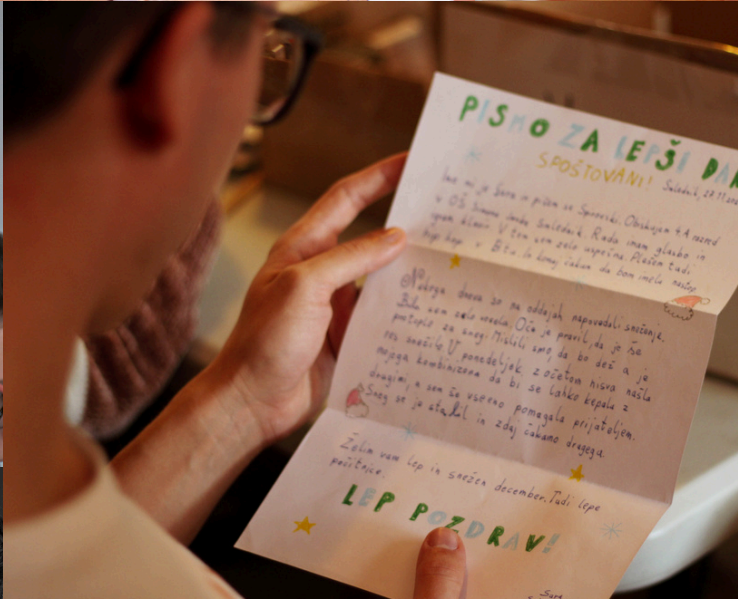 PISMO ZA LEPŠI DAN
SPOŠTOVANI!
Smlednik, 27.11.
Ime mi je Sara in pišem se Obiskujem 4.A razred
v OŠ Simona Jenka Smlednik. Rada imam glasbo in
igram klavir. V tem sem zelo uspešna. Plešem tudi
hip hop v komaj čakam da bom imela nastop.
Nekega dneva so na oddajah napovedali sneženje.
Bila sem zelo vesela. Oče je pravil, da je še
pretoplo za sneg. Mislili smo, da bo dež a je
res snežilo. V ponedeljek z očetom nisva našla
mojega kombinizona da bi se lahko kepala z
drugimi, a sem še vseeno pomagala prijateljem.
Sneg se je stalil in zdaj čakamo drugega.
Želim vam lep in snežen december. Tudi lepe
počitnice.
LEP POZDRAV!
Sara